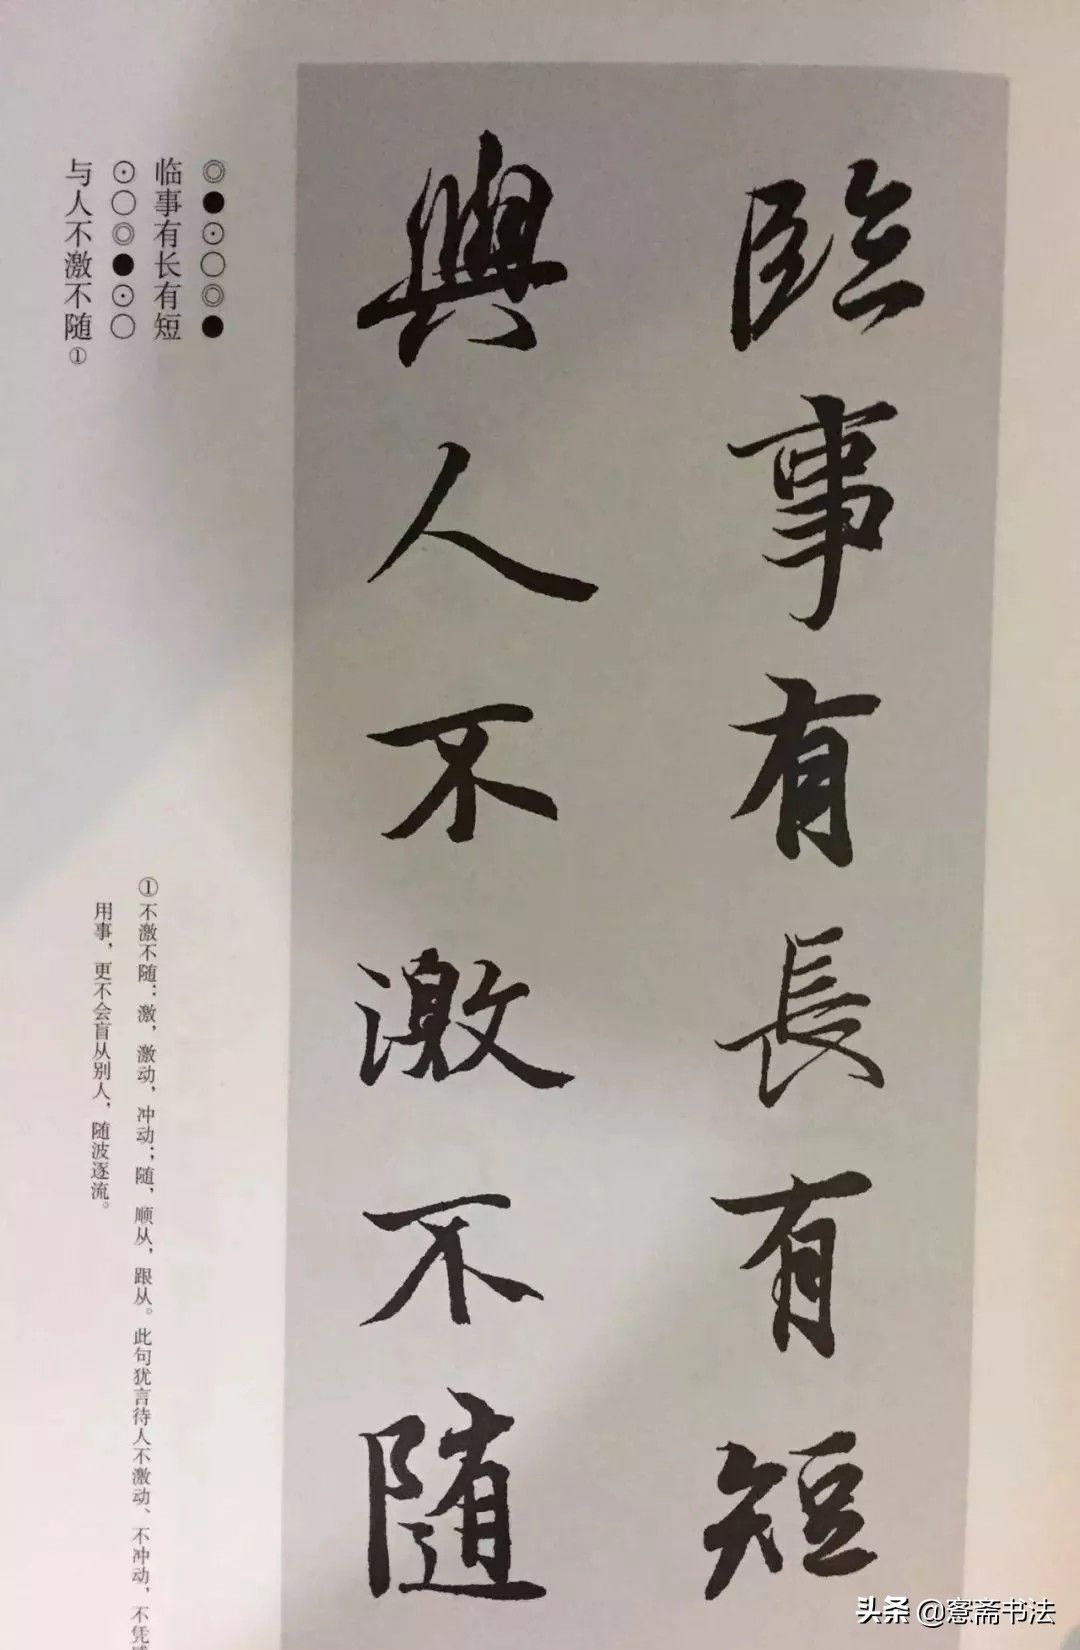 臨事有長有短
與人不激不随
◎●⊙○◎●
临事有长有短
⊙○◎●⊙○
与人不激不随①
①不激不随：激，激动，冲动；随，顺从，跟从。此句犹言待人不激动、不冲动，不凭
用事，更不会盲从别人，随波逐流。
头条 @愙斋书法